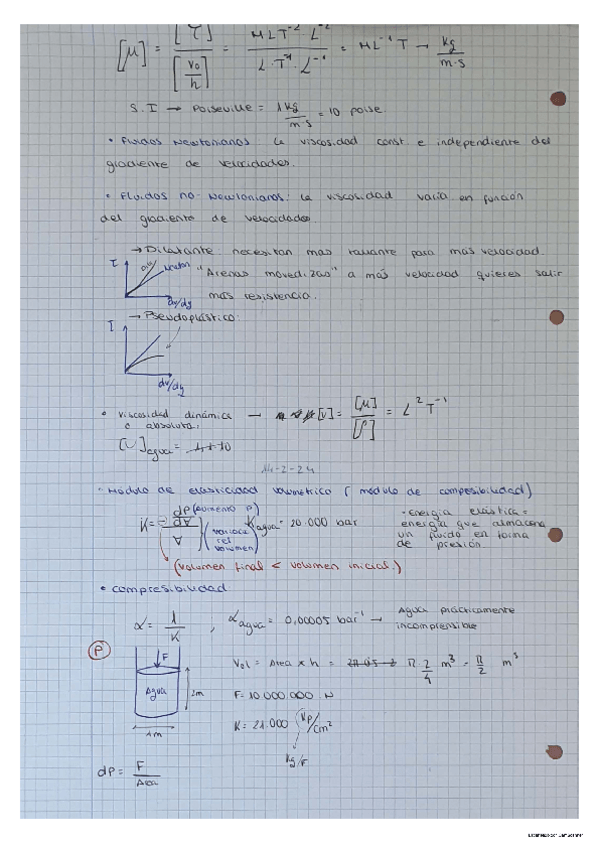 [μ] = [τ] / [v₀/h] = M L T⁻² L⁻² / L·T⁻¹·L⁻¹ = ML⁻¹T → kg / m·s
S.I → Poiseville = 1 kg / m·s = 10 poise.
• Fluidos Newtonianos: la viscosidad const. e independiente del
gradiente de velocidades.
• Fluidos no-Newtonianos: la viscosidad varia en función
del gradiente de velocidades.
→ Dilatante: necesitan mas tallante para más velocidad.
τ
Newton
"Arenas movedizas" a más velocidad quieres salir
dv/dy
más resistencia.
→ Pseudoplástico:
τ
dv/dy
• Viscosidad dinámica → [ν] = [μ] / [ρ] = L² T⁻¹
o absoluta:
[ν]agua =
14-2-24
• Módulo de elasticidad volumétrico (módulo de compresibilidad)
K = - dP (aumento P) / dV / V
(variación rel volumen)
Kagua = 20.000 bar
- energía elástica =
energía que almacena
un fluido en forma
de presión.
(volumen final < volumen inicial.)
• Compresibilidad
α = 1 / K , αagua = 0,00005 bar⁻¹ → Agua prácticamente
incompresible
P
F
Agua
2m
1m
Vol = Area × h = π 2/4 m³ = π/2 m³
F = 10.000.000 N
K = 21.000 kp/cm²
kg/F
dP = F / Area